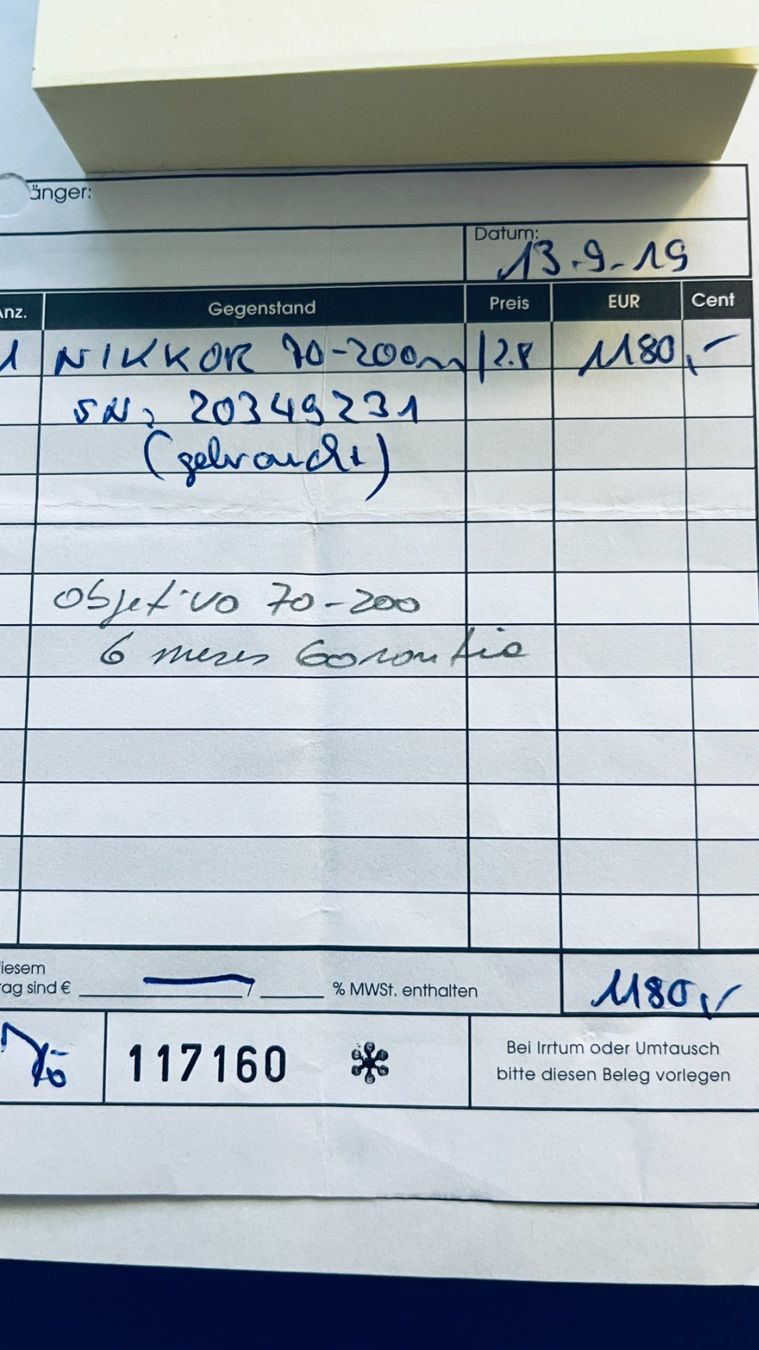 änger:
Datum:
13.9.19
Anz. Gegenstand Preis EUR Cent
1 NIKKOR 70-200m/2.8 1180,-
SN: 20349231
(gebraucht)
Objetivo 70-200
6 meses Garantia
iesem
ag sind € % MWSt. enthalten 1180,-
117160
Bei Irrtum oder Umtausch
bitte diesen Beleg vorlegen